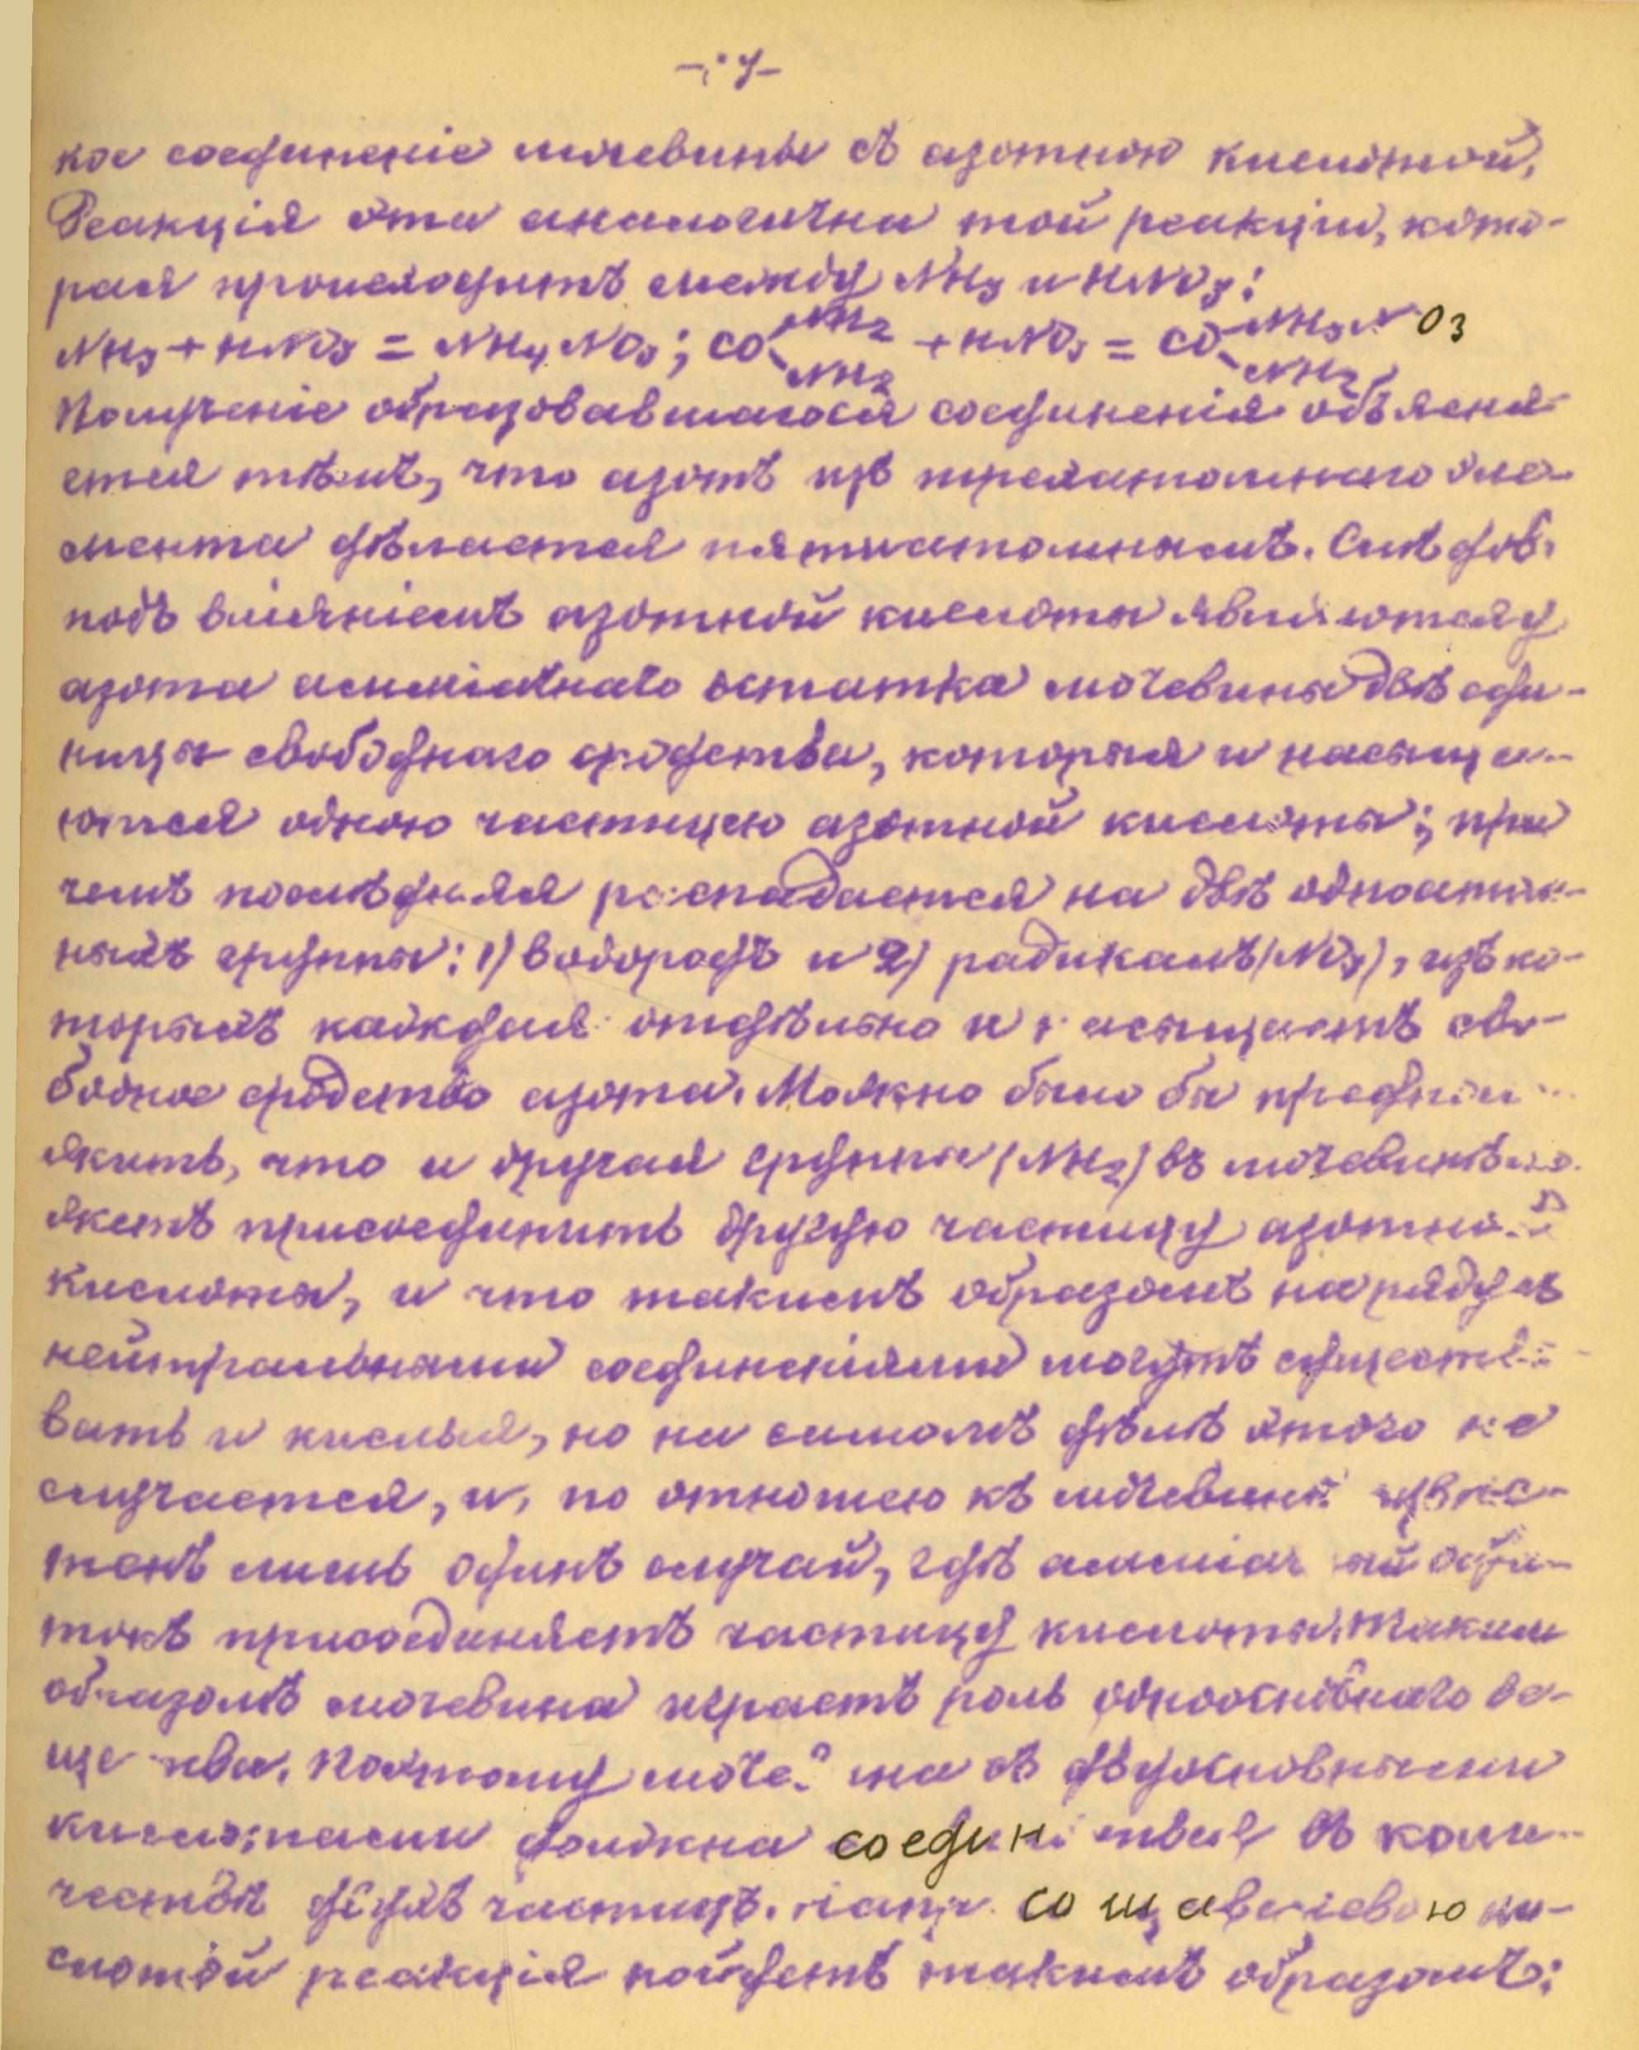 кое соединеніе мочевины съ азотною кислотой.
Реакція эта аналогична той реакціи, кото-
рая происходитъ между NH₃ и HNO₃:
NH₃ + HNO₃ = NH₄NO₃; CO<NH₂ NH₂ + HNO₃ = CO<NH₃NO₃ NH₂
Полученіе образовавшагося соединенія объясня-
ется тѣмъ, что азотъ изъ трехатомнаго эле-
мента дѣлается пятиатомнымъ. Слѣдов.
подъ вліяніемъ азотной кислоты являются у
азота амміачнаго остатка мочевины двѣ еди-
ницы свободнаго сродства, которыя и насыща-
ются одною частицею азотной кислоты; при
чемъ послѣдняя распадается на двѣ одноатом-
ныхъ группы: 1) водородъ и 2) радикалъ (NO₃), изъ ко-
торыхъ каждая отдѣльно и насыщаетъ сво-
бодное сродство азота. Можно было бы предполо-
жить, что и другая группа (NH₂) въ мочевинѣ мо-
жетъ присоединить другую частицу азотной
кислоты, и что такимъ образомъ на ряду съ
нейтральными соединеніями могутъ существо-
вать и кислыя, но на самомъ дѣлѣ этого не
случается, и, по отношею къ мочевинѣ извѣс-
тенъ лишь одинъ случай, гдѣ амміачный оста-
токъ присоединяетъ частицу кислоты. Такимъ
образомъ мочевина играетъ роль одноосновнаго ве-
щества. Поэтому мочевина съ двуосновными
кислотами должна соединяться въ коли-
чествѣ двухъ частицъ. напр. со щавелевою ки-
слотой реакція пойдетъ такимъ образомъ: